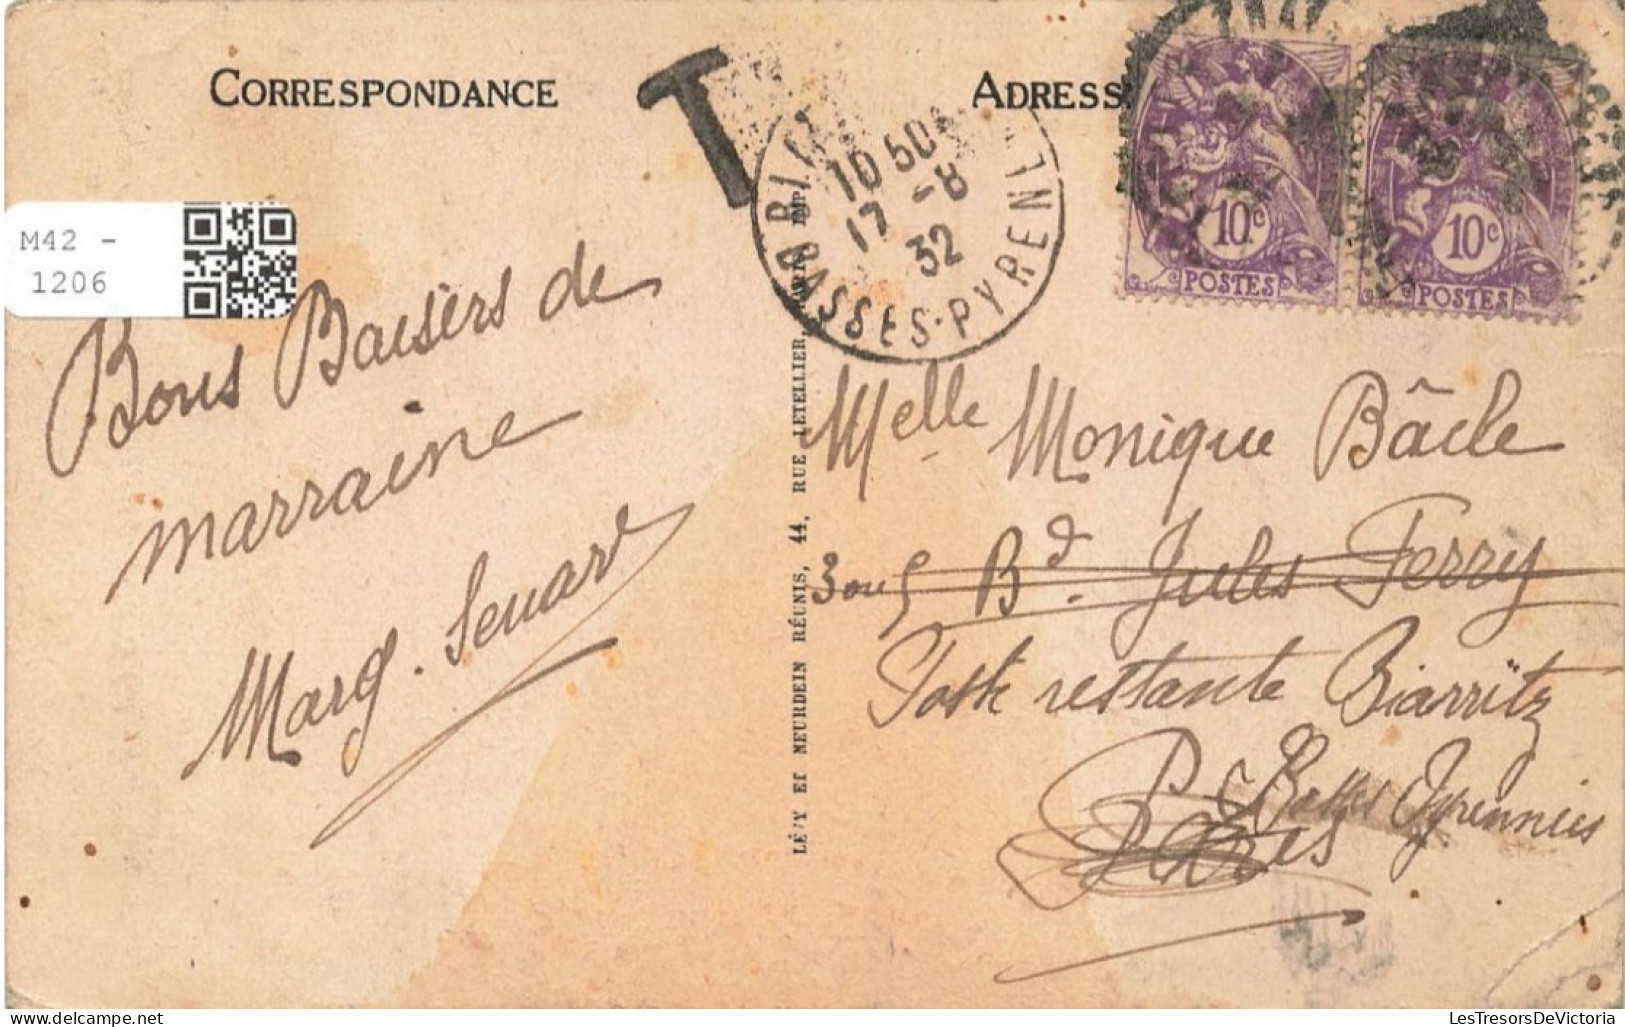 CORRESPONDANCE
ADRESS
T
10 50
17 -8
32
BASSES-PYRENE
10c
POSTES
10c
POSTES
M42 -
1206
Bons Baisers de
marraine
Marg. Senard
LÉVY ET NEURDEIN RÉUNIS, 44, RUE LETELLIER, PARIS IMP.
Melle Monique Bâcle
3 ou 5 Bd. Jules Ferry
Poste restante Biarritz
Basses Pyrennées
Paris
LesTresorsDeVictoria.com
LesTresorsDeVictoria